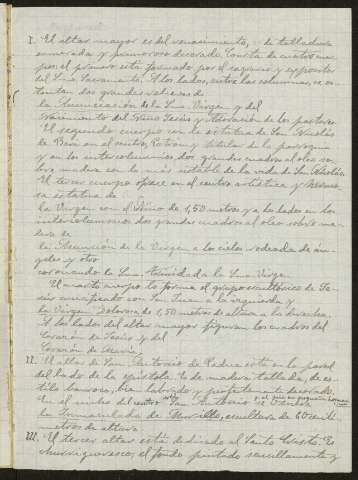 I. El altar mayor es del renacimiento, de talladura
esmerada y primoroso decorado. Consta de cuatro cuer-
pos: el primero está formado por el sagrario y expositor
del Smo. Sacramento. A los lados, entre las columnas, se os-
tentan dos grandes relieves de
la Anunciación de la Sma. Virgen y del
Nacimiento del Niño Jesús y Adoración de los pastores.
El segundo cuerpo con la estatua de San Nicolás
de Bari en el centro, Patrón y titular de la parroquia
y en los intercolumnios, dos grandes cuadros al oleo so-
bre madera con lo más notable de la vida de San Nicolás.
El tercer cuerpo ofrece en el centro artística y hermo-
sa estatua de
la Virgen con el Niño de 1,50 metros y a los lados en los
intercolumnios dos grandes cuadros al oleo sobre ma-
dera de
la Asunción de la Virgen a los cielos rodeada de án-
geles y otro
coronando la Sma. Trinidad a la Sma. Virgen.
El cuarto cuerpo lo forma el grupo escultórico de Je-
sús crucificado con San Juan a la izquierda y
la Virgen Dolorosa de 1,50 metros de altura a la derecha.
A los lados del altar mayor figuran los cuadros del
Corazón de Jesús y del
Corazón de María.
II. El altar de San Antonio de Padua está en la pared
del lado de la epístola. Es de madera tallada, de es-
tilo barroco, bien labrado y perfectamente decorado.
y al pie en pequeña
En el nicho del centro San Antonio de Padua
la Inmaculada de Murillo, escultura de 60 centí-
metros de altura.
III. El tercer altar está dedicado al Santo Cristo. Es
churrigueresco, el fondo pintado sencillamente y